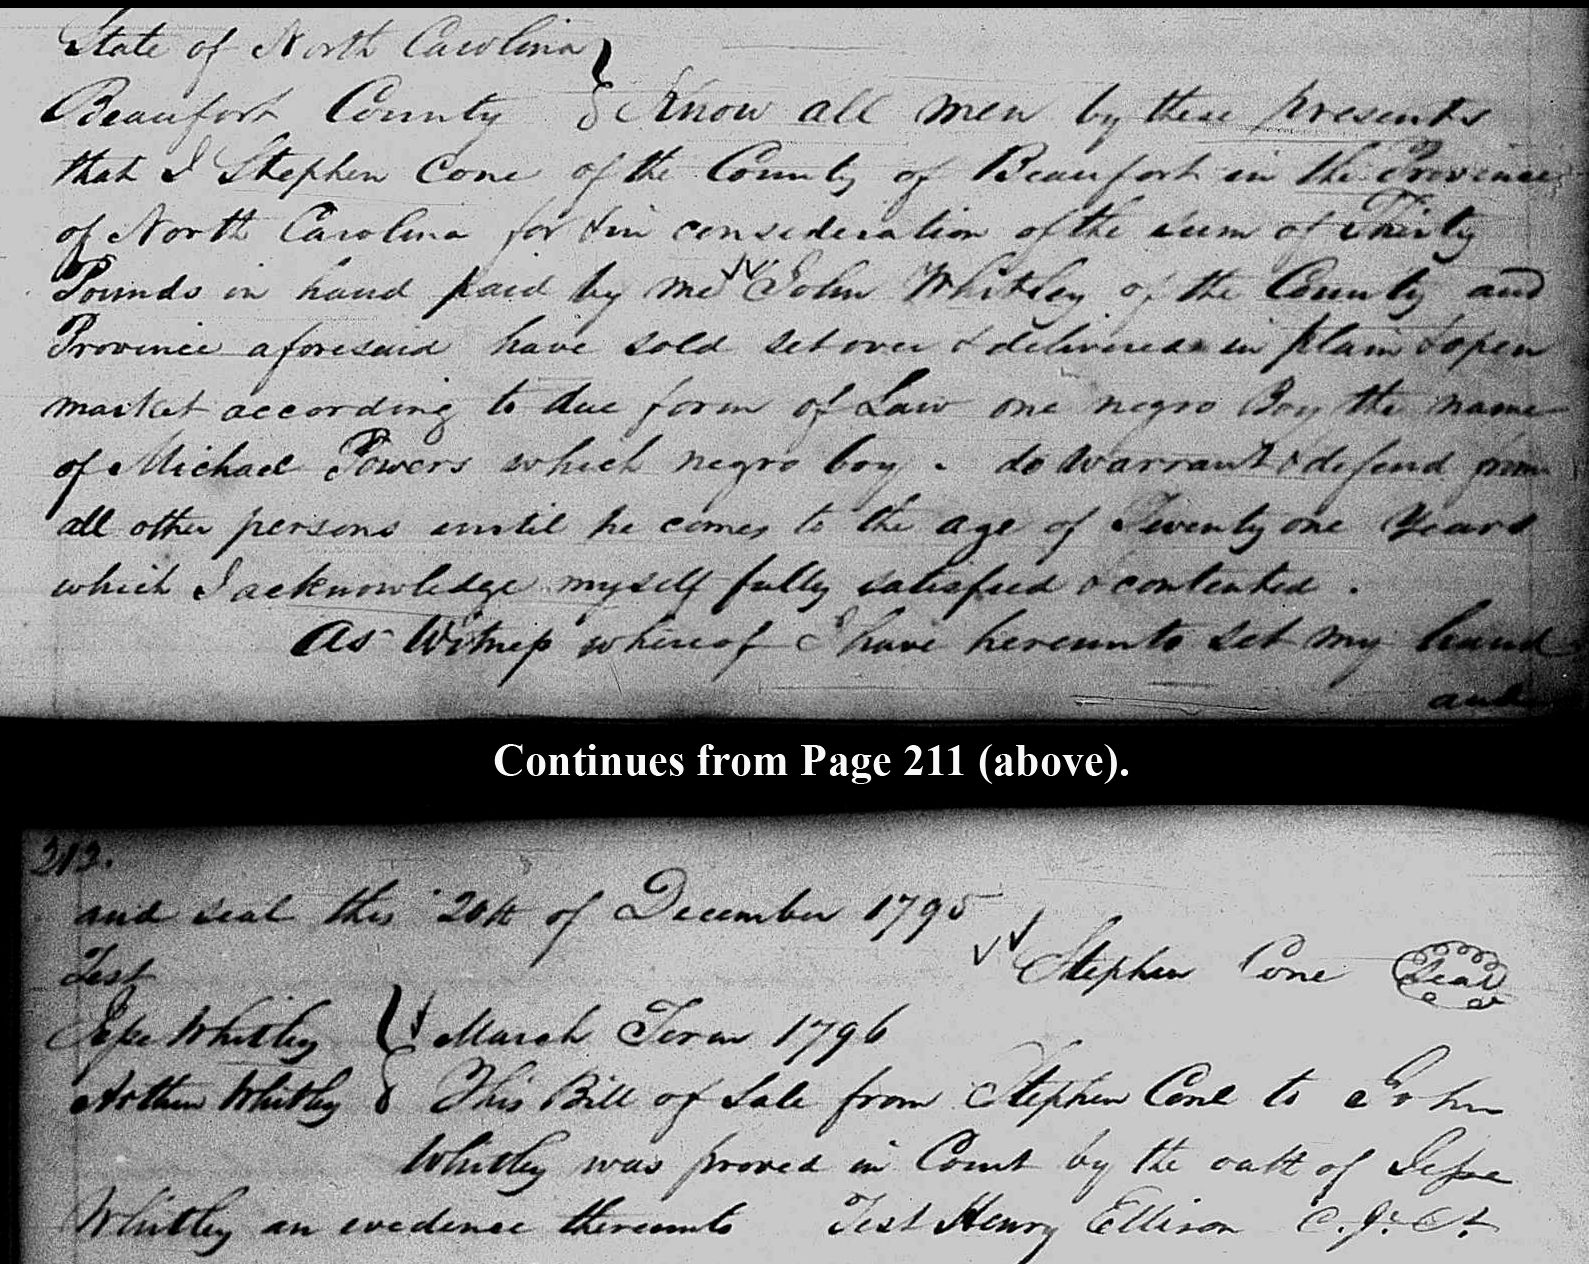 State of North Carolina
Beaufort County } Know all men by these presents
that I Stephen Cone of the County of Beaufort in the Province
of North Carolina for & in consideration of the sum of Thirty
Pounds in hand paid by me John Whitley of the County and
Province aforesaid have sold set over & delivered in plain & open
market according to due form of Law one negro Boy the name
of Michael Powers which negro boy . do warrant & defend from
all other persons until he comes to the age of Twenty one Years
which I acknowledge myself fully satisfied & contented .
As Witness whereof I have hereunto set my hand
and
Continues from Page 211 (above).
212.
and seal this 20th of December 1795
Stephen Cone Seal
Test
Jesse Whitley } March Term 1796
Arthur Whitley } This Bill of Sale from Stephen Cone to John
Whitley was proved in Court by the oath of Jesse
Whitley an evedence thereunto Test Henry Ellison C. Ct.